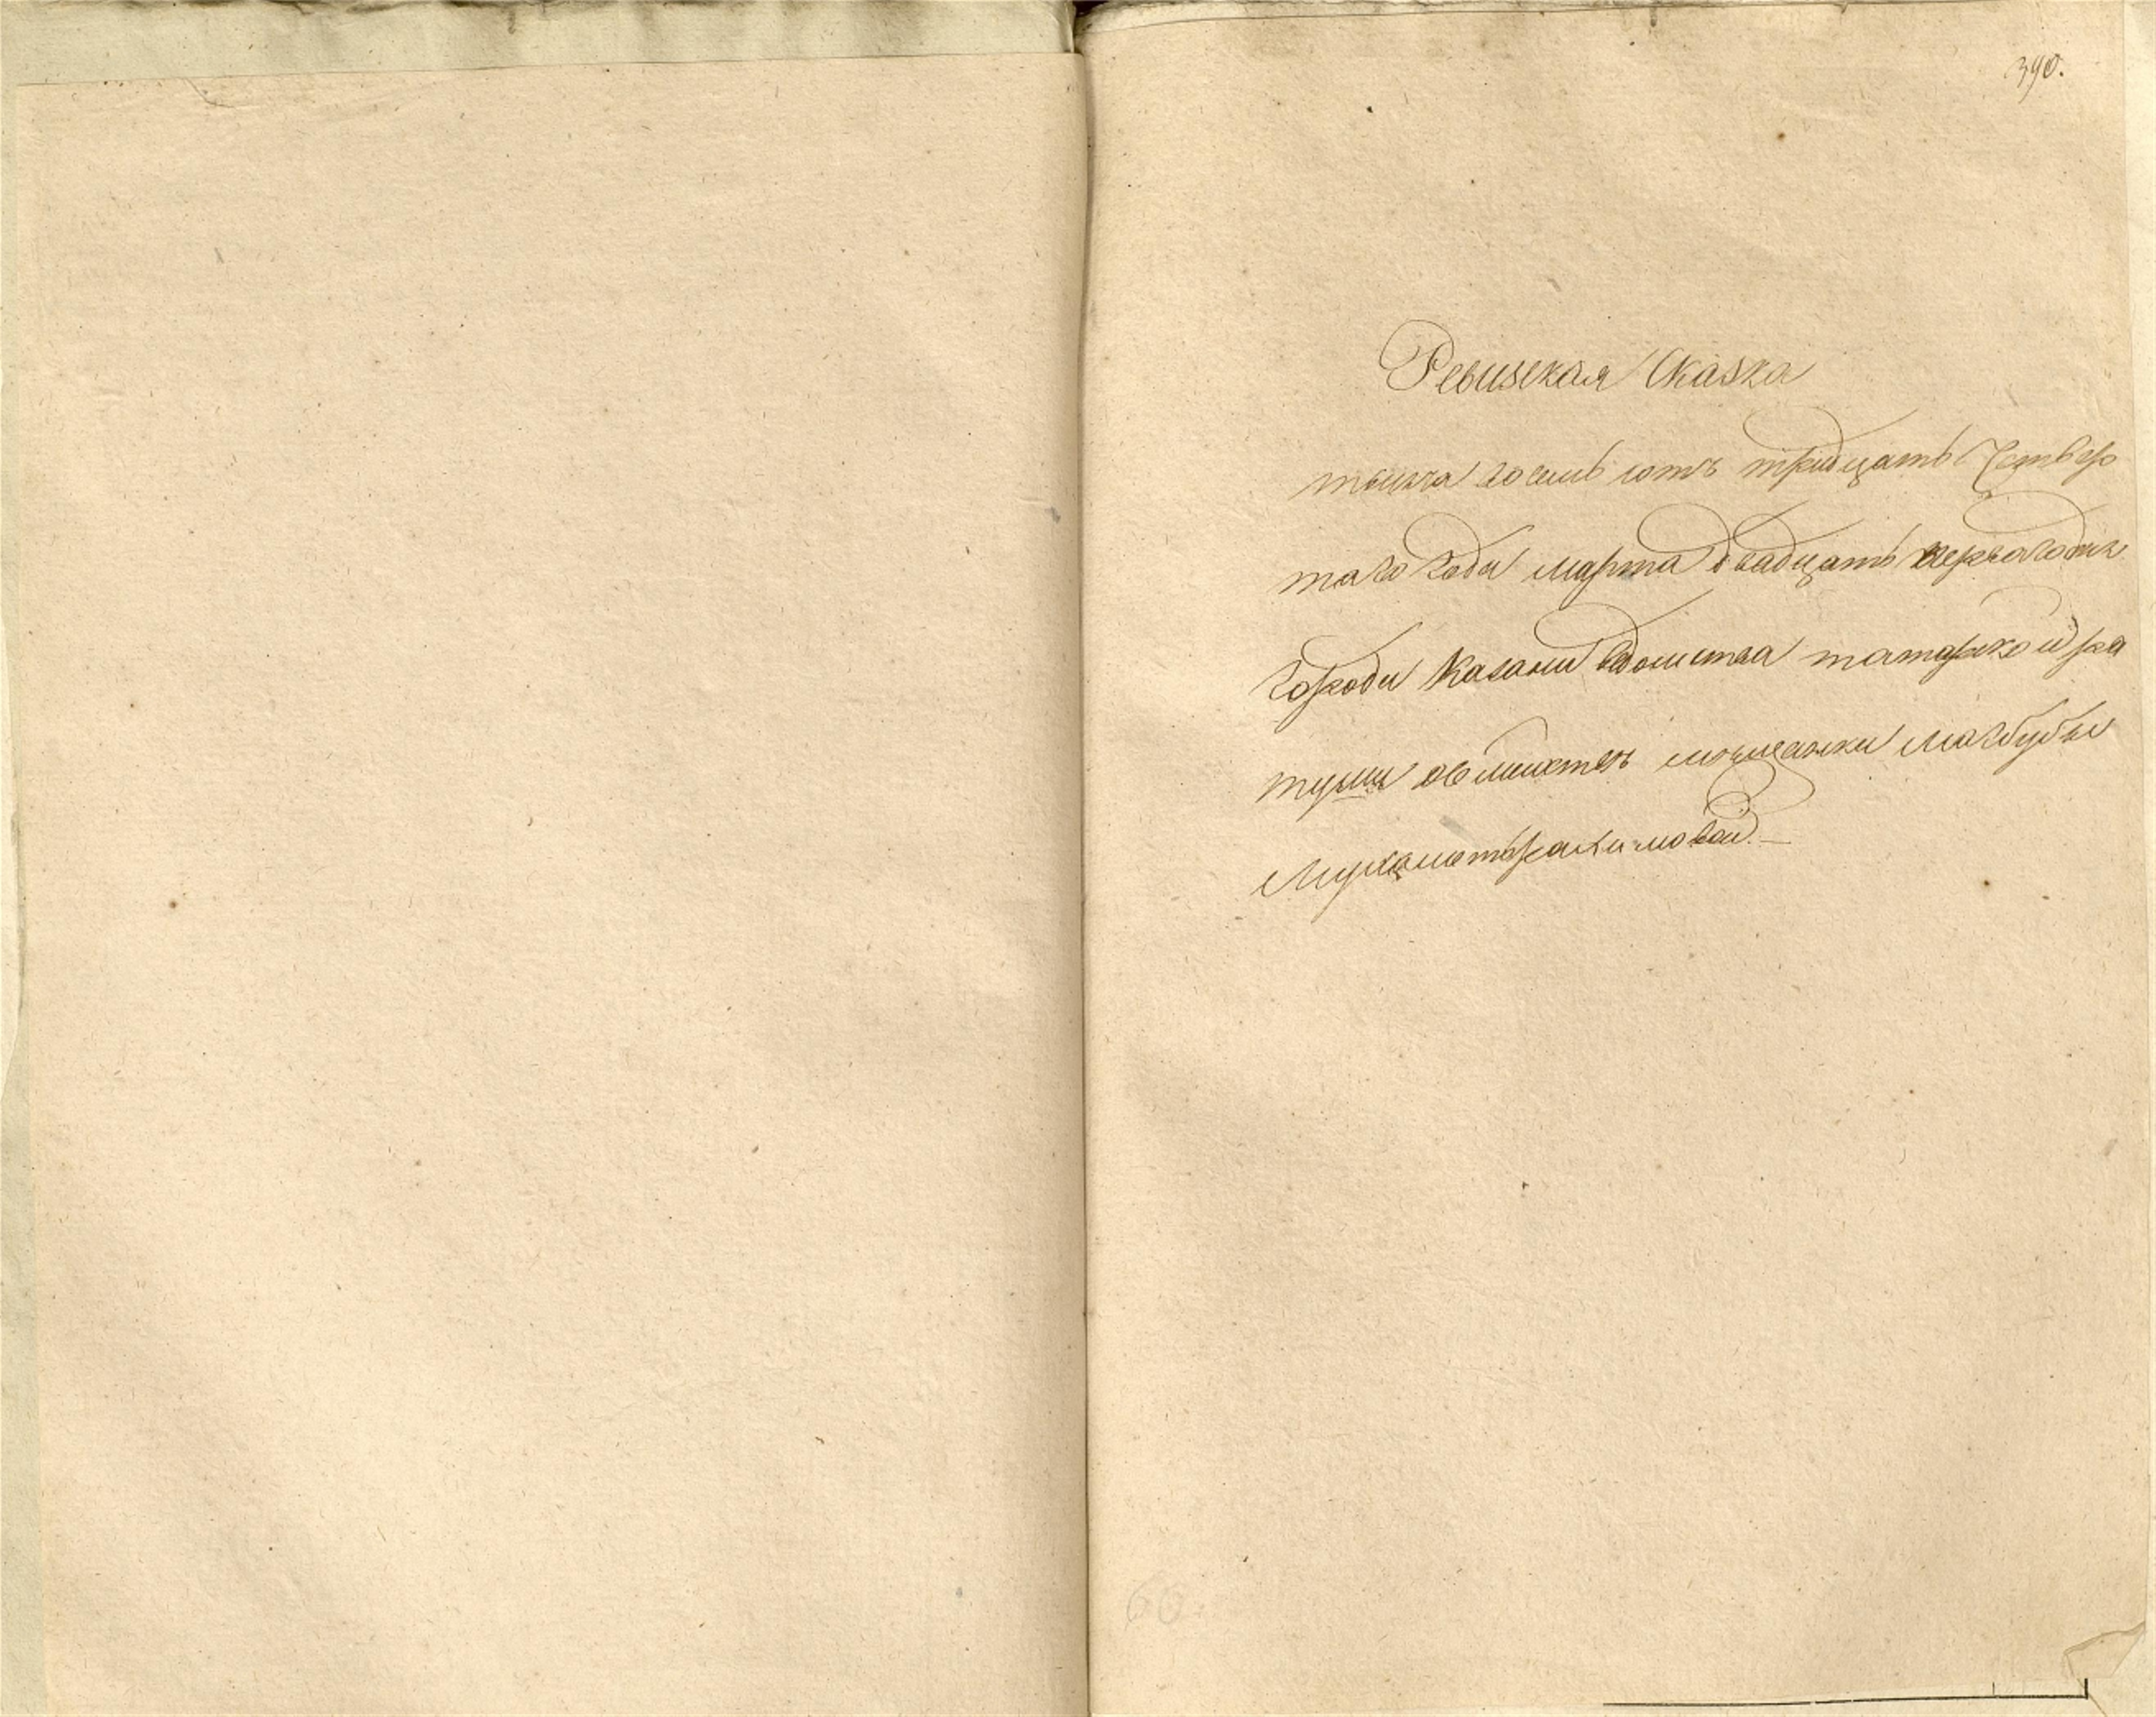 390.
Ревизская Сказка
тысяча восемь сотъ тридцать Четвер
таго года марта двадцать первагодня
города Казани ведомства татарской ра
туши о мещанки Магбубы
Мухаметьрахимовой. —
60